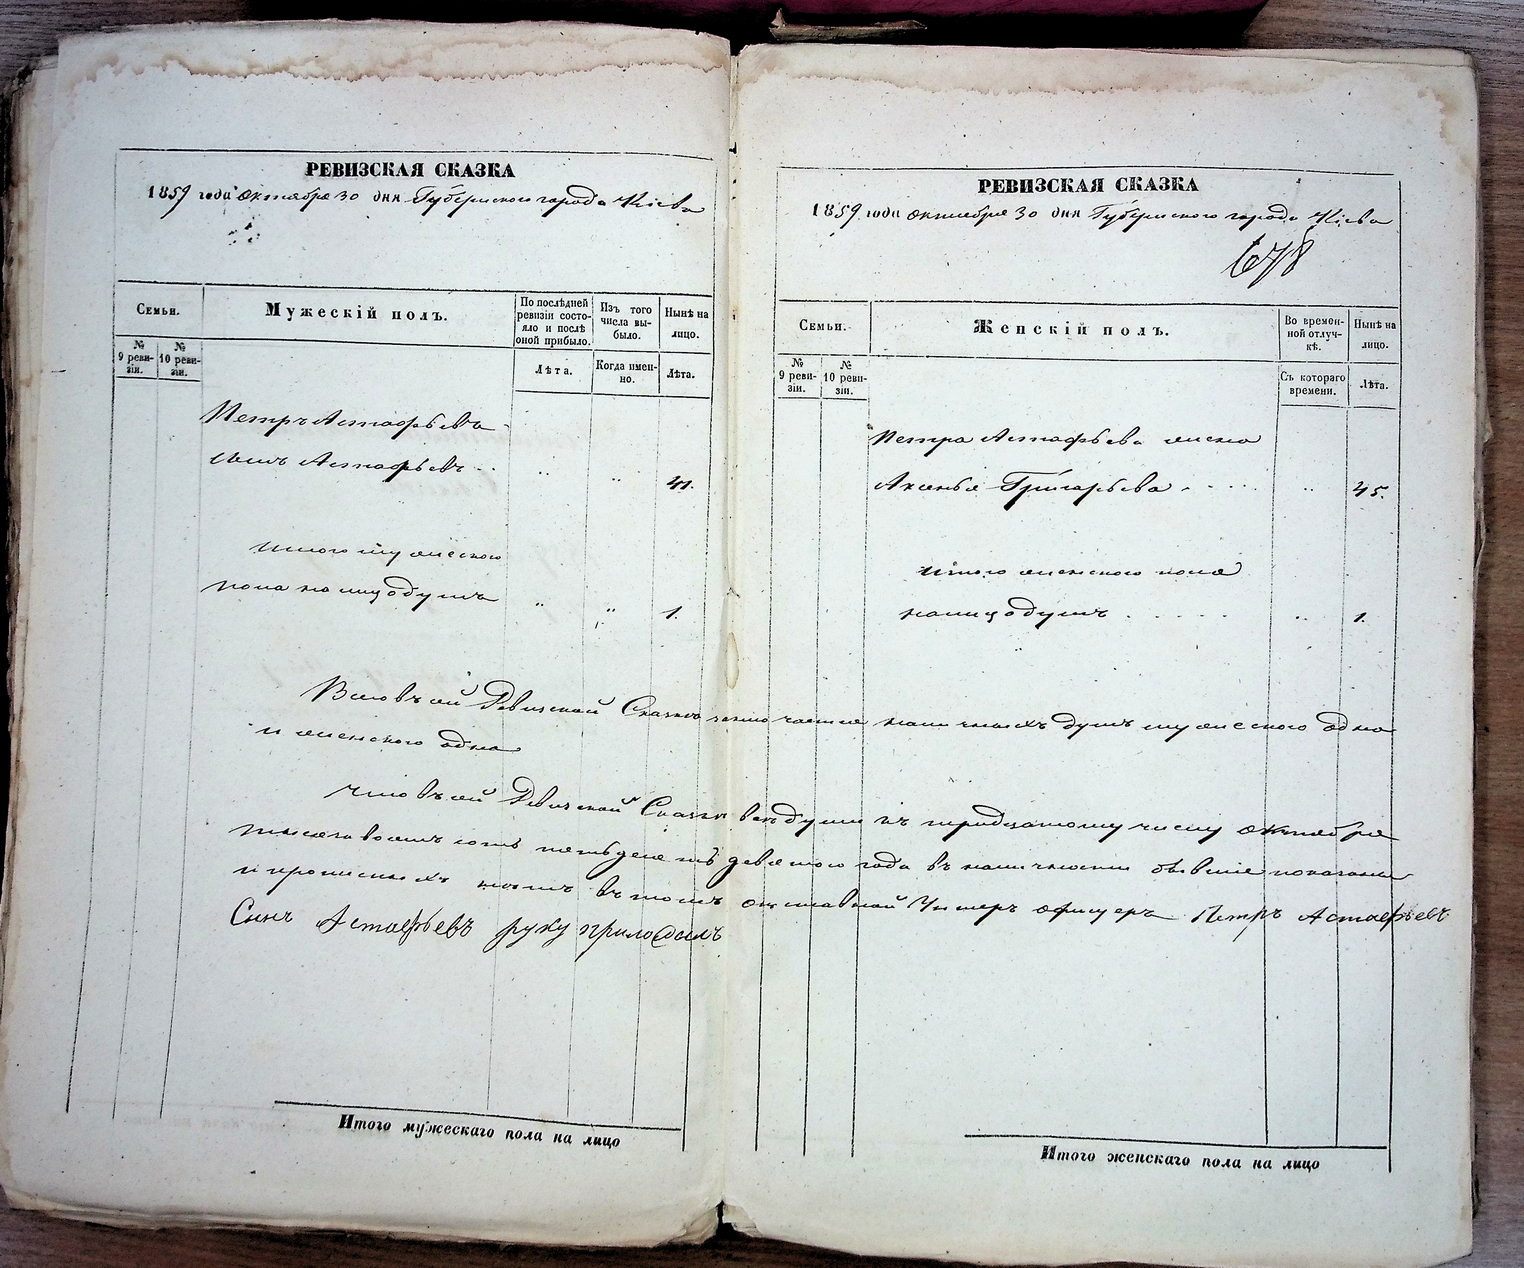 РЕВИЗСКАЯ СКАЗКА
1859 года Октября 30 дня Губернского города Кіева
Семьи.
Мужескій полъ.
По послѣдней ревизіи состояло и послѣ оной прибыло.
Изъ того числа выбыло.
Нынѣ на лицо.
№ 9 ревизіи.
№ 10 ревизіи.
Лѣта.
Когда именно.
Лѣта.
Петръ Астафьевъ
сынъ Астафьевъ " " 41.
Итого мужеского
пола на лицо душъ " " 1.
РЕВИЗСКАЯ СКАЗКА
1859 года Октября 30 дня Губернского города Кіева
678
Семьи.
Женскій полъ.
Во временной отлучкѣ.
Нынѣ на лицо.
№ 9 ревизіи.
№ 10 ревизіи.
Съ котораго времени.
Лѣта.
Петра Астафьева жена
Аксенья Григорьева " 45.
Итого женского пола
налицо душъ " 1.
Всего въ сей Ревизской Сказке заключается наличныхъ душъ мужеского одна
и женского одна
Что въ сей Ревизской Сказки все души къ тридцатому числу Октября
тысяча восемь сотъ пятьдесятъ девятого года въ наличности бывшіе показаны
и прописныхъ нетъ въ томъ отставной Унтеръ офицеръ Петръ Астафьевъ
Сынъ Астафьевъ руку приложилъ
Итого мужескаго пола на лицо
Итого женскаго пола на лицо